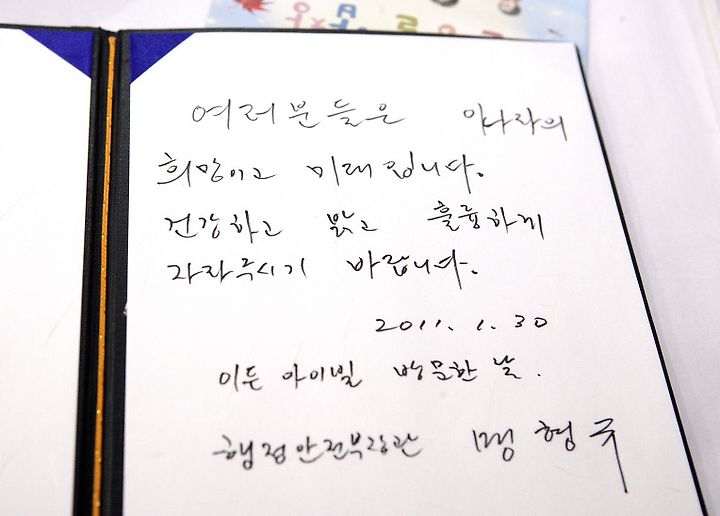 여러분들은 이나라의
희망이고 미래입니다.
건강하고 밝고 훌륭하게
자라주시기 바랍니다.
2011. 1. 30
이든 아이빌 방문한 날.
행정안전부장관 맹형규